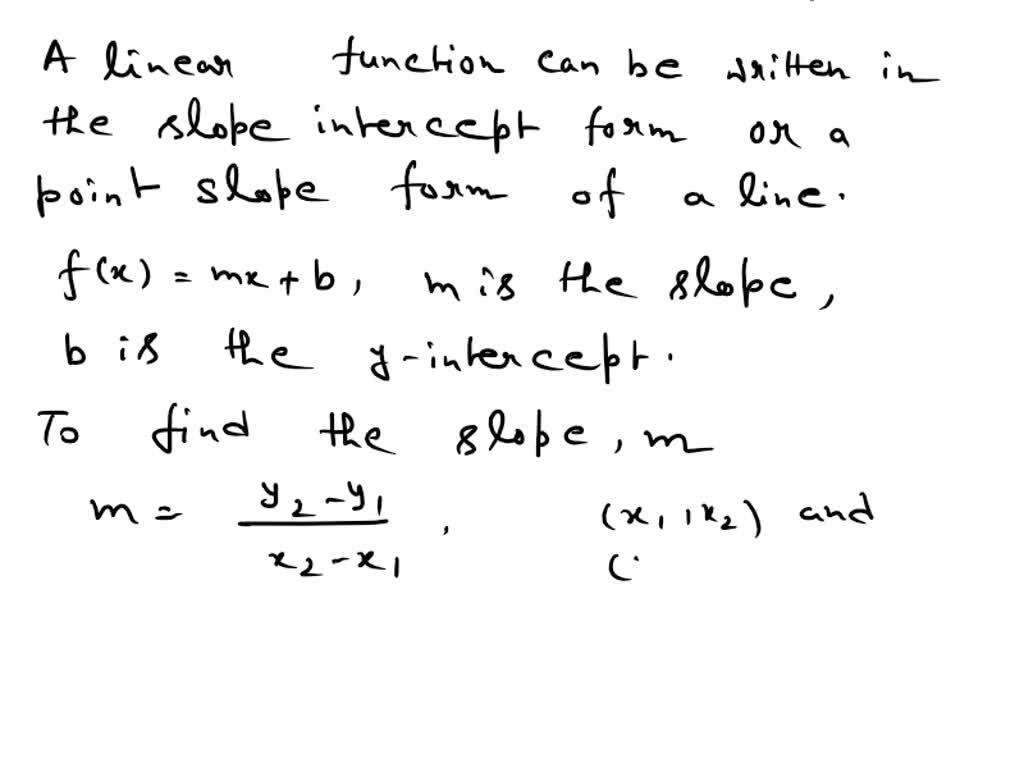 A linear function can be written in
the slope intercept form or a
point slope form of a line.
f(x) = mx + b, m is the slope,
b is the y-intercept.
To find the slope, m
m = y₂-y₁ / x₂-x₁ , (x₁, x₂) and
(